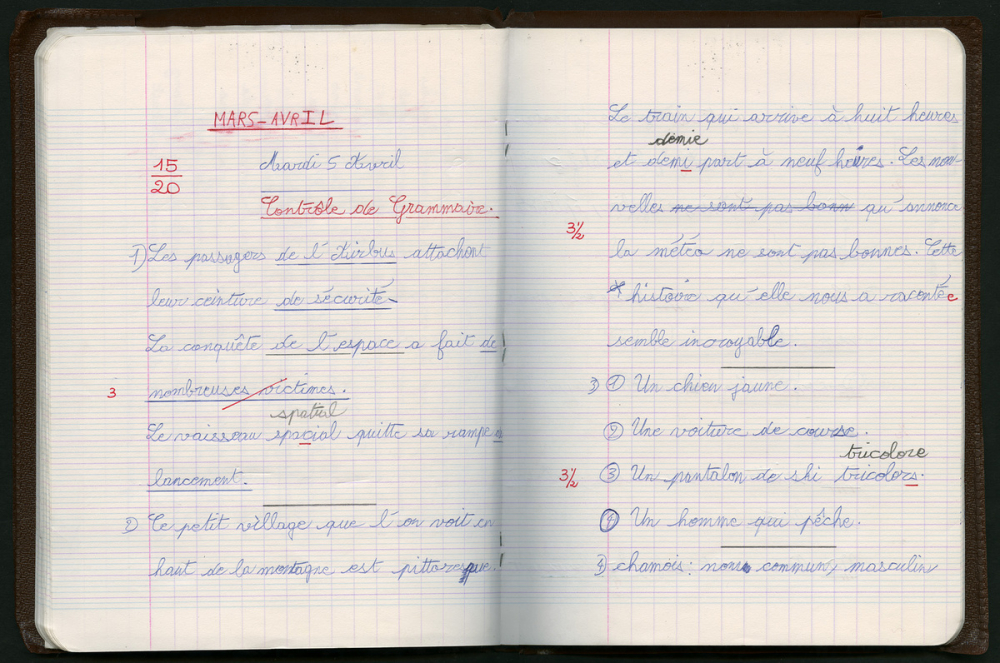 MARS-AVRIL
15
20
Mardi 5 Avril
Contrôle de Grammaire.
1) Les passagers de l'Airbus attachent
leur ceinture de sécurité
La conquête de l'espace a fait de
3
nombreuses victimes.
spatial
Le vaisseau spacial quitte sa rampe de
lancement.
2) Ce petit village que l'on voit en
haut de la montagne est pittoresque.
Le train qui arrive à huit heures
démie
et demi part à neuf heures. Les nou-
velles ne sont pas bonn qu'annonce
3½
la météo ne sont pas bonnes. Cette
* histoire qu'elle nous a racontée
semble incroyable.
3) ① Un chien jaune.
② Une voiture de course.
tricolore
3½
③ Un pantalon de shi tricolors.
④ Un homme qui pêche.
4) chamois: nom commun, masculin